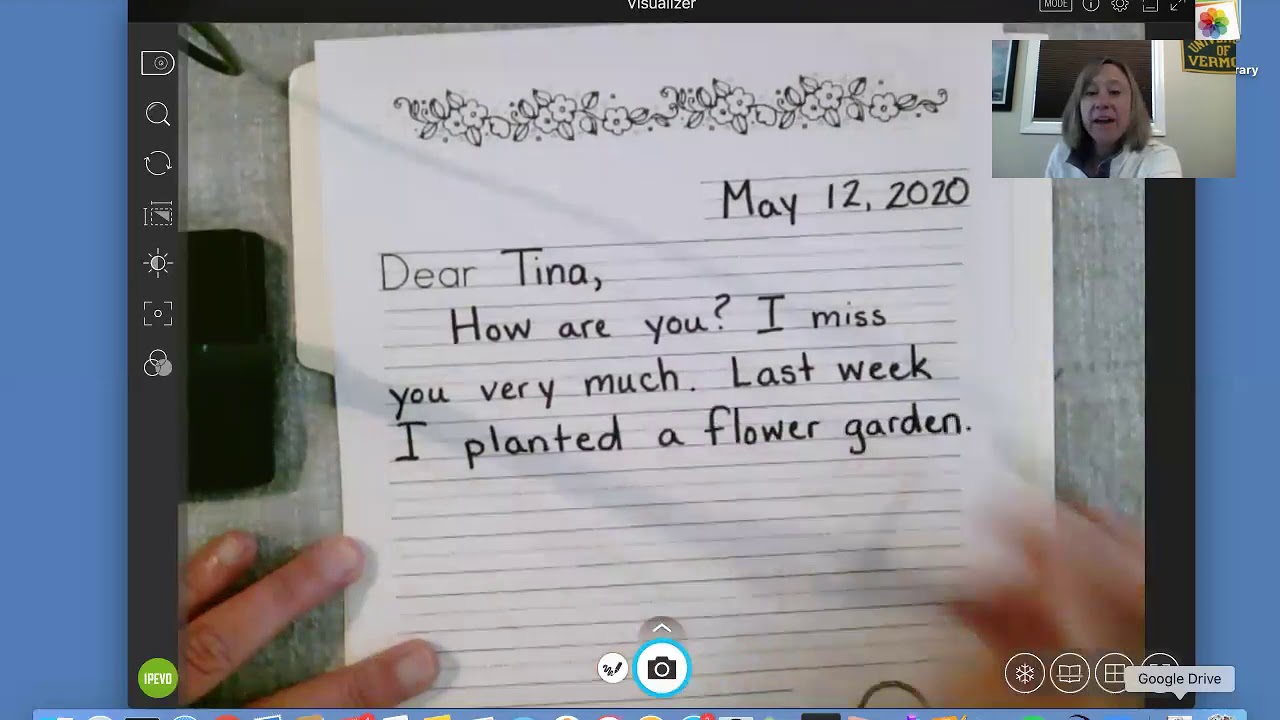 Visualizer
MODE
UNIVERS
OF
VERMO
rary
May 12, 2020
Dear Tina,
How are you? I miss
you very much. Last week
I planted a flower garden.
IPEVO
Google Drive